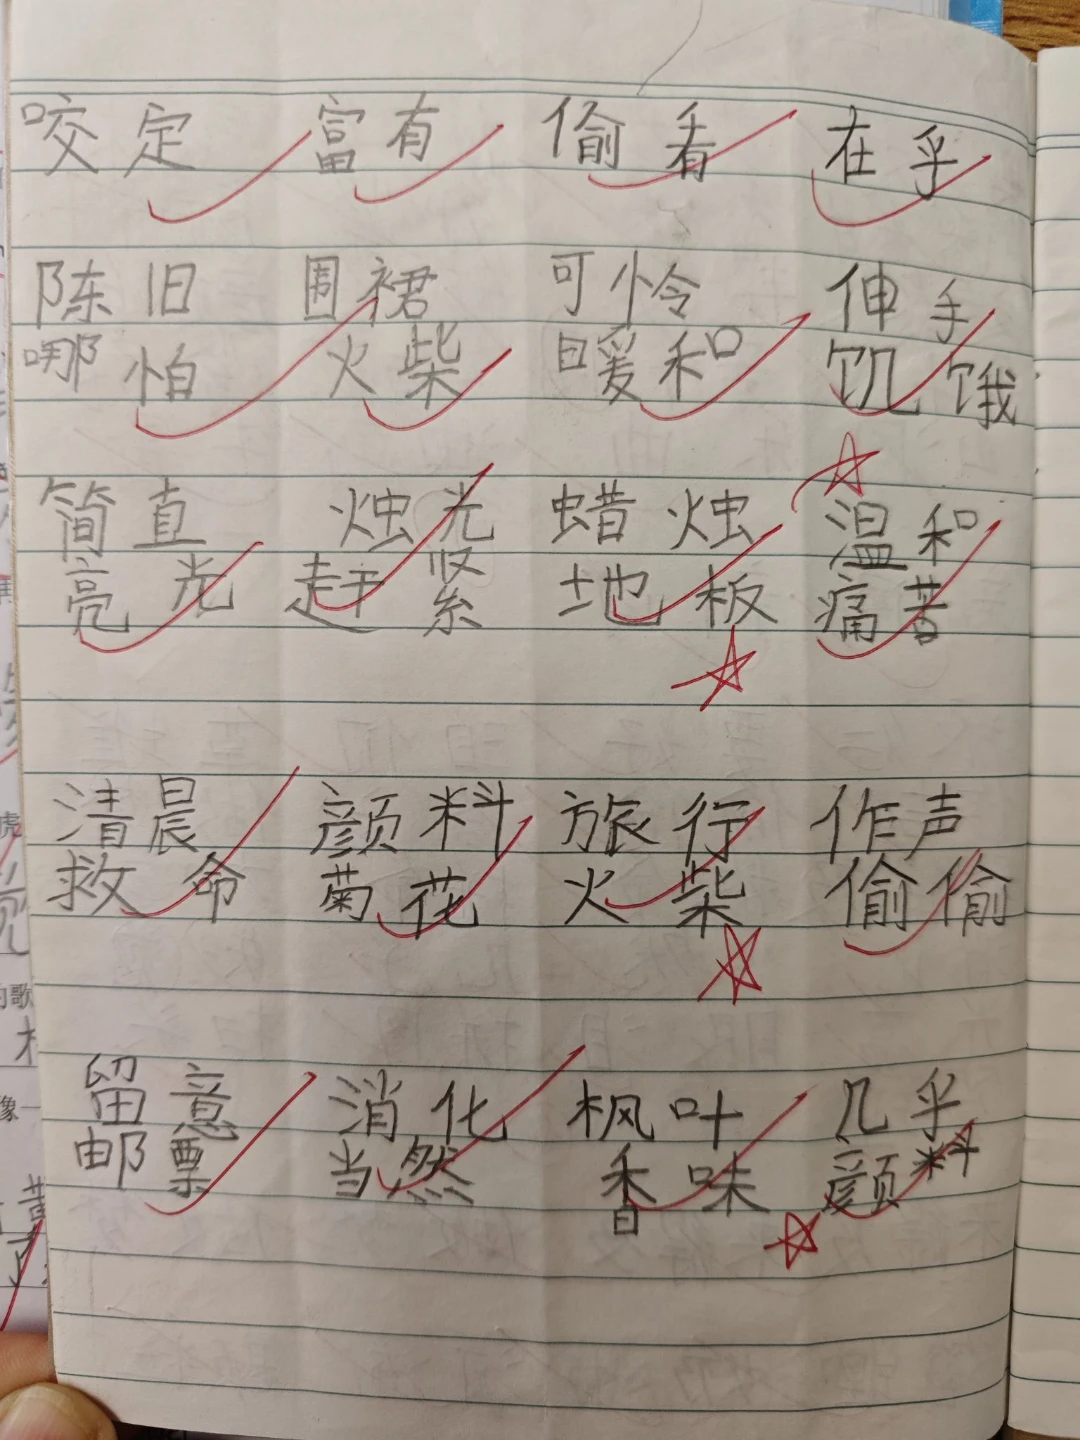 咬定 富有 偷看 在乎
陈旧 围裙 可怜 伸手
哪怕 火柴 暖和 饥饿
简直 烛光 蜡烛 温和
亮光 赶紧 地板 痛苦
清晨 颜料 旅行 作声
救命 菊花 火柴 偷偷
留意 消化 枫叶 几乎
邮票 当然 香味 颜料